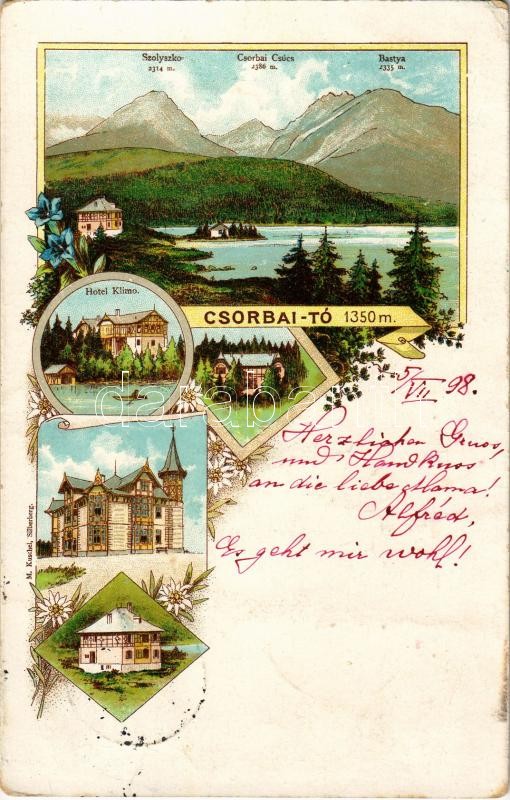 Szolyszko
2314 m.
Csorbai Csúcs
2386 m.
Bastya
2335 m.
Hotel Klimo.
CSORBAI-TÓ 1350 m.
5/VII 98.
Herzlichen Gruss,
und Handkuss
an die liebe Mama!
Alfréd,
Es geht mir wohl!
M. Kuschel, Silberberg.
darabanth